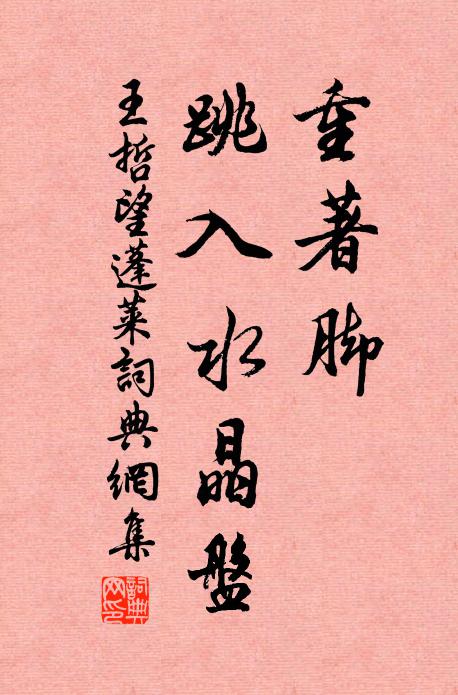 重著脚
跳入水晶盤
王哲望蓬莱詞典網集
詞典網印